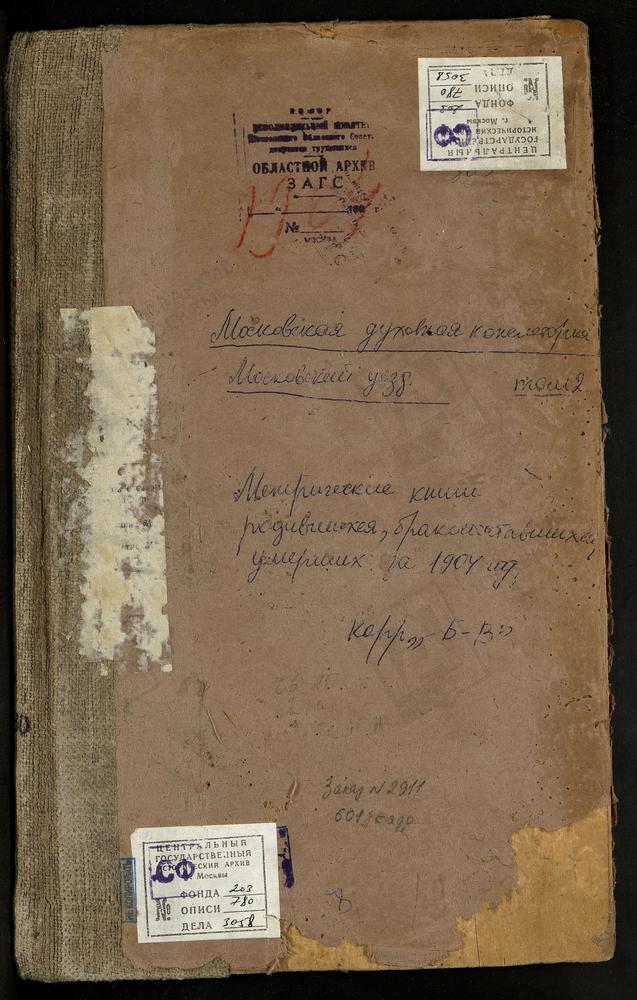 ЦЕНТРАЛЬНЫЙ
ГОСУДАРСТВЕННЫЙ
ИСТОРИЧЕСКИЙ
г. Москвы
СФ
№ ФОНДА 203
ОПИСИ 780
ДЕЛА 3058
РСФСР
ОБЛАСТНОЙ АРХИВ
ЗАГС
№
г. МОСКВА
Московская духовная консистория
Московский уезд. том 2
Метрические книги
родившихся, бракосочетавшихся,
умерших за 1904 год.
корр „Б-В"
Заказ N 2911
601 кадр
8
ЦЕНТРАЛЬНЫЙ
ГОСУДАРСТВЕННЫЙ
ИСТОРИЧЕСКИЙ АРХИВ
г. Москвы
СФ
№ ФОНДА 203
ОПИСИ 780
ДЕЛА 3058